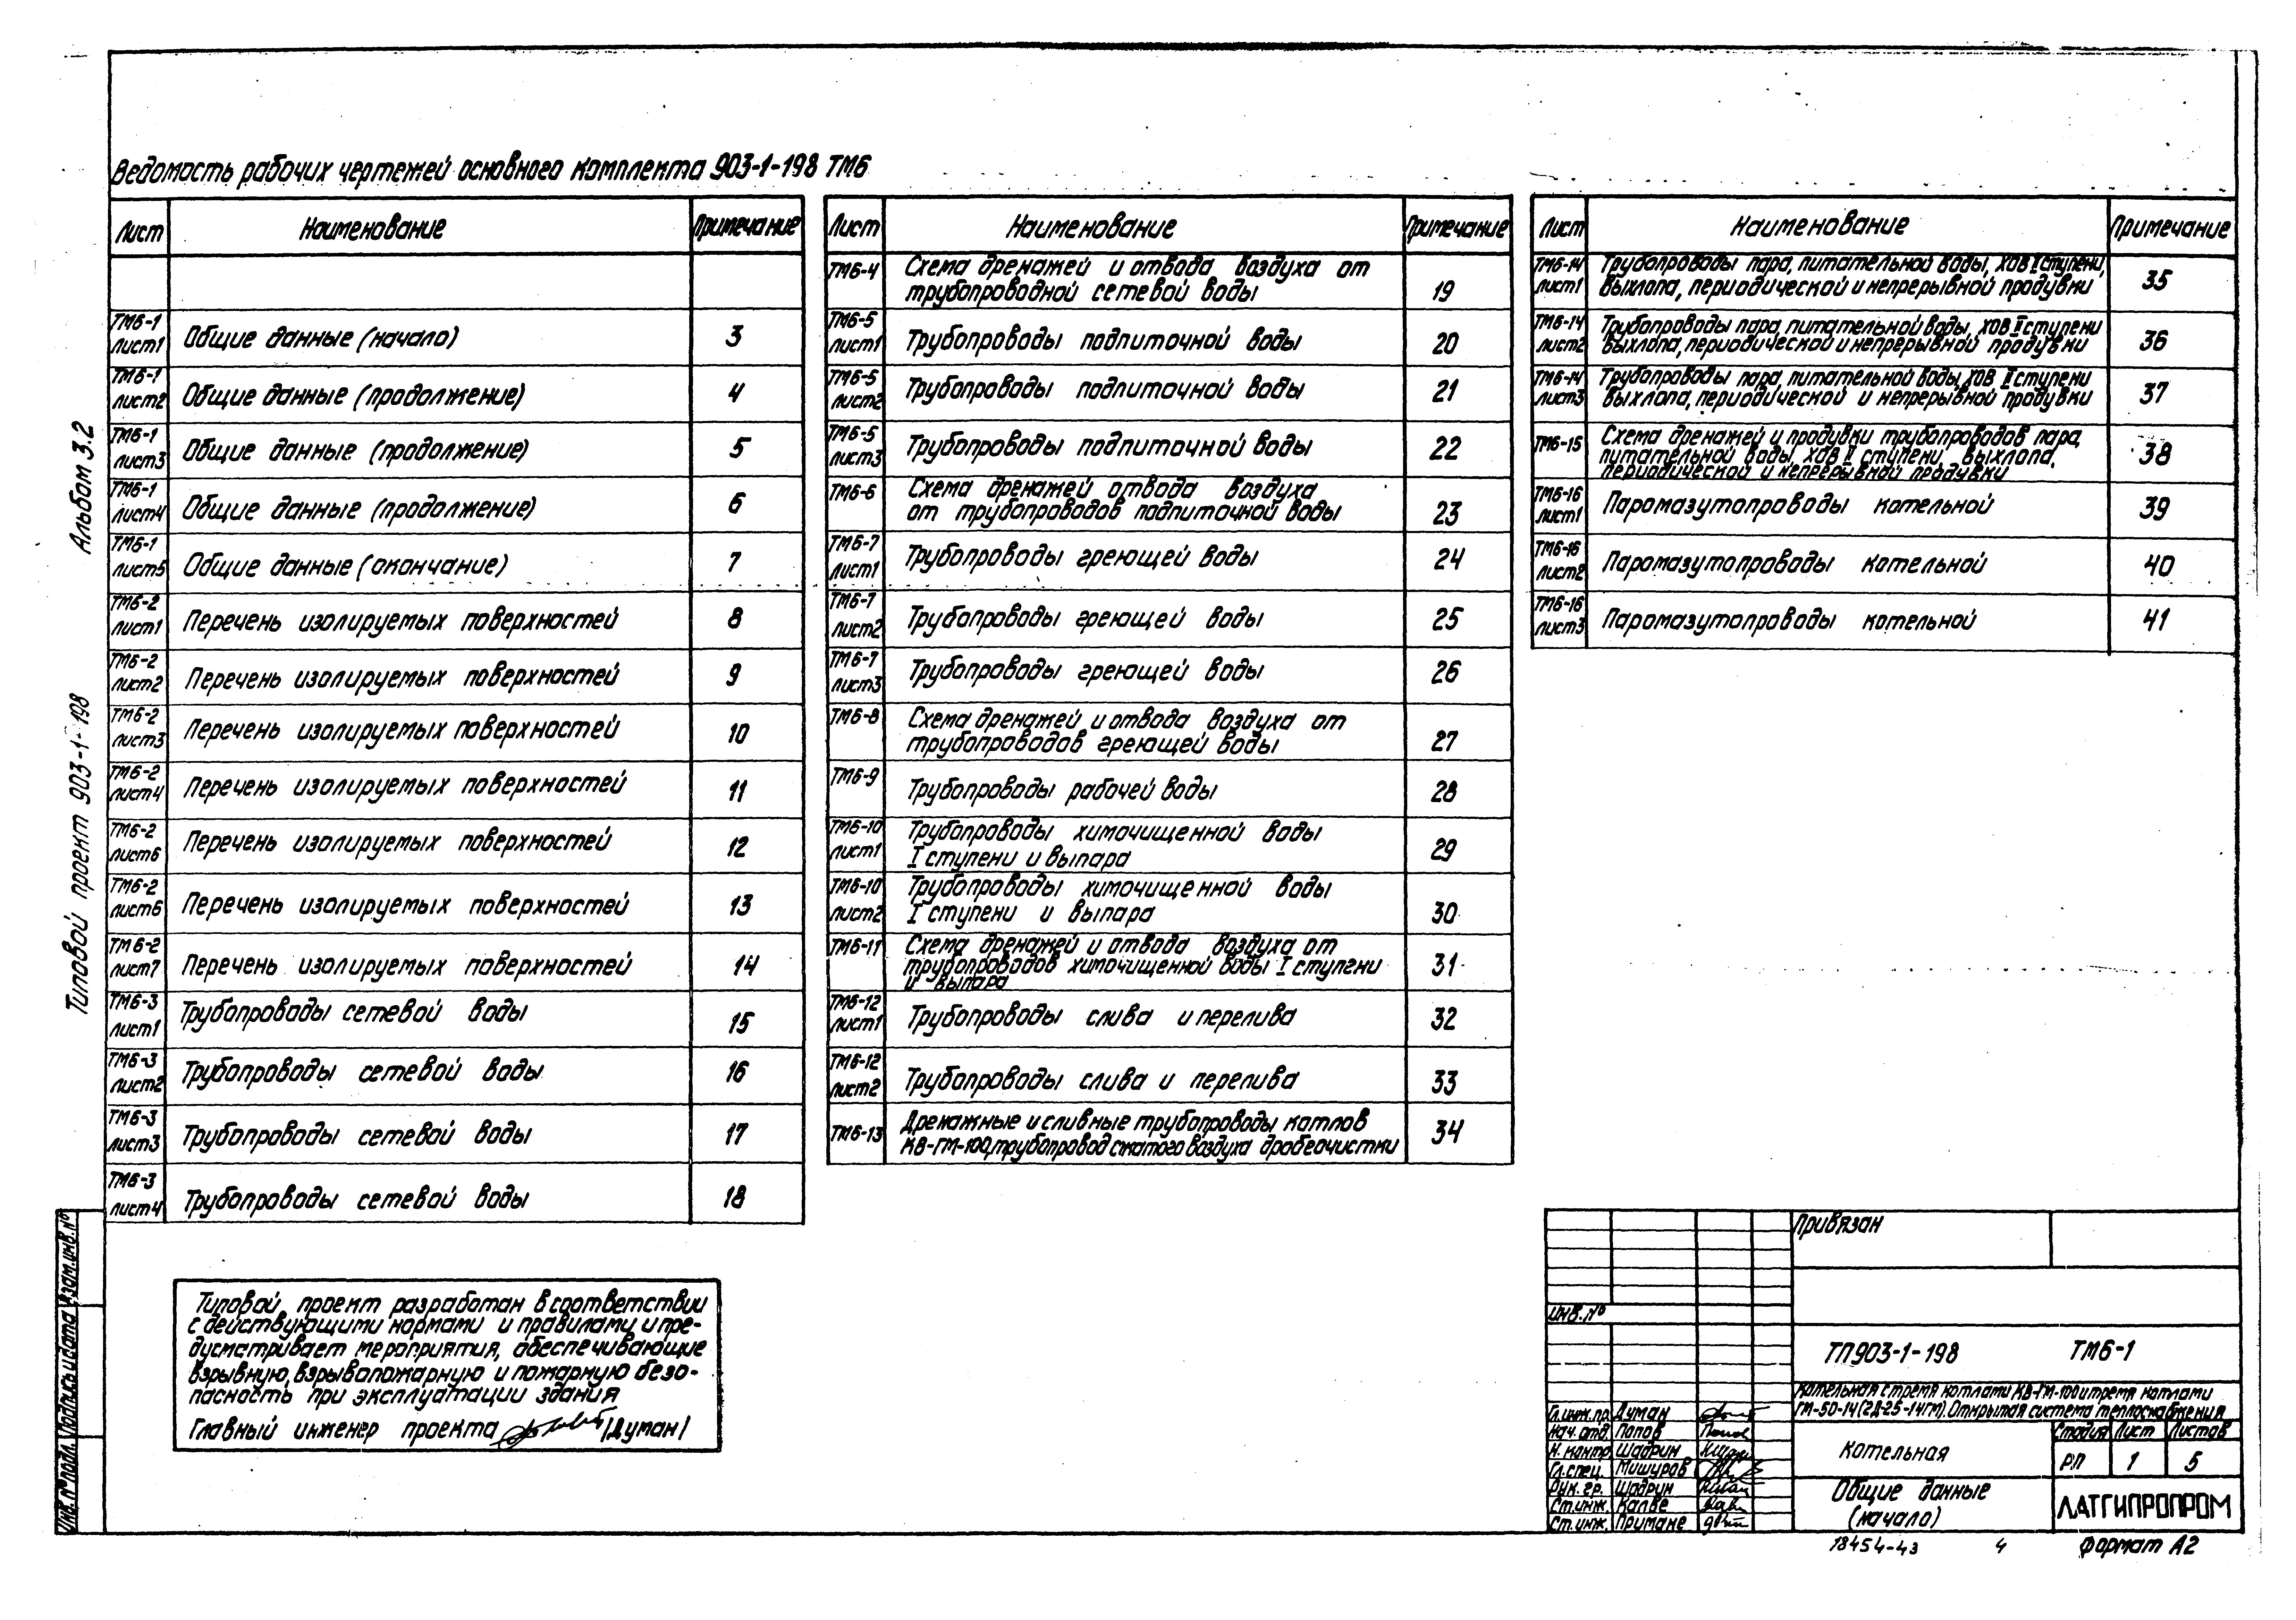 Ведомость рабочих чертежей основного комплекта 903-1-198 ТМ6
Лист Наименование Примечание
ТМ6-1 лист1 Общие данные (начало) 3
ТМ6-1 лист2 Общие данные (продолжение) 4
ТМ6-1 лист3 Общие данные (продолжение) 5
ТМ6-1 лист4 Общие данные (продолжение) 6
ТМ6-1 лист5 Общие данные (окончание) 7
ТМ6-2 лист1 Перечень изолируемых поверхностей 8
ТМ6-2 лист2 Перечень изолируемых поверхностей 9
ТМ6-2 лист3 Перечень изолируемых поверхностей 10
ТМ6-2 лист4 Перечень изолируемых поверхностей 11
ТМ6-2 лист6 Перечень изолируемых поверхностей 12
ТМ6-2 лист6 Перечень изолируемых поверхностей 13
ТМ6-2 лист7 Перечень изолируемых поверхностей 14
ТМ6-3 лист1 Трубопроводы сетевой воды 15
ТМ6-3 лист2 Трубопроводы сетевой воды 16
ТМ6-3 лист3 Трубопроводы сетевой воды 17
ТМ6-3 лист4 Трубопроводы сетевой воды 18
Лист Наименование Примечание
ТМ6-4 Схема дренажей и отвода воздуха от
трубопроводной сетевой воды 19
ТМ6-5 лист1 Трубопроводы подпиточной воды 20
ТМ6-5 лист2 Трубопроводы подпиточной воды 21
ТМ6-5 лист3 Трубопроводы подпиточной воды 22
ТМ6-6 Схема дренажей отвода воздуха
от трубопроводов подпиточной воды 23
ТМ6-7 лист1 Трубопроводы греющей воды 24
ТМ6-7 лист2 Трубопроводы греющей воды 25
ТМ6-7 лист3 Трубопроводы греющей воды 26
ТМ6-8 Схема дренажей и отвода воздуха от
трубопроводов греющей воды 27
ТМ6-9 Трубопроводы рабочей воды 28
ТМ6-10 лист1 Трубопроводы химочищенной воды
I ступени и выпара 29
ТМ6-10 лист2 Трубопроводы химочищенной воды
I ступени и выпара 30
ТМ6-11 Схема дренажей и отвода воздуха от
трубопроводов химочищенной воды I ступени
и выпара 31
ТМ6-12 лист1 Трубопроводы слива и перелива 32
ТМ6-12 лист2 Трубопроводы слива и перелива 33
ТМ6-13 Дренажные и сливные трубопроводы котлов
КВ-ГМ-100, трубопровод сжатого воздуха дробеочистки 34
Лист Наименование Примечание
ТМ6-14 лист1 Трубопроводы пара, питательной воды, ХОВ II ступени,
выхлопа, периодической и непрерывной продувки 35
ТМ6-14 лист2 Трубопроводы пара, питательной воды, ХОВ II ступени
выхлопа, периодической и непрерывной продувки 36
ТМ6-14 лист3 Трубопроводы пара, питательной воды, ХОВ II ступени
выхлопа, периодической и непрерывной продувки 37
ТМ6-15 Схема дренажей и продувки трубопроводов пара,
питательной воды, ХОВ II ступени, выхлопа,
периодической и непрерывной продувки 38
ТМ6-16 лист1 Паромазутопроводы котельной 39
ТМ6-16 лист2 Паромазутопроводы котельной 40
ТМ6-16 лист3 Паромазутопроводы котельной 41
Альбом 3.2
Типовой проект 903-1-198
Инв. № подл. Подпись и дата Взам.инв.№
Типовой проект разработан в соответствии
с действующими нормами и правилами и пре-
дусматривает мероприятия, обеспечивающие
взрывную, взрывопожарную и пожарную безо-
пасность при эксплуатации здания
Главный инженер проекта /Думан/
Привязан
инв.№
ТП903-1-198 ТМ6-1
Котельная с тремя котлами КВ-ГМ-100 и тремя котлами
ГМ-50-14 (2Д-25-14ГМ). Открытая система теплоснабжения
Гл.инж.пр. Думан
Нач. отд. Попов
Н. контр Шадрин
Гл.спец. Мишуров
Рук. гр. Шадрин
Ст.инж. Калве
Ст.инж. Примане
Котельная
Стадия Лист Листов
РП 1 5
Общие данные
(начало)
ЛАТГИПРОПРОМ
18454-43 4 Формат А2